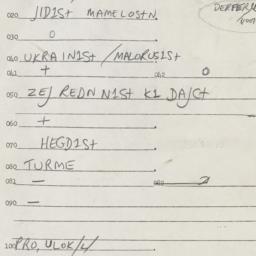 020 JIDIST MAMELOSTN
DERFERU
030 O
040 UKRAINIST/MALORUSIST
041 + 042 O
050 ZEJ REDN NIST KI DAJCT
060 +
070 HEGDIST
080 TURME
082 —
090 —
100 PRO, ULOK/L/